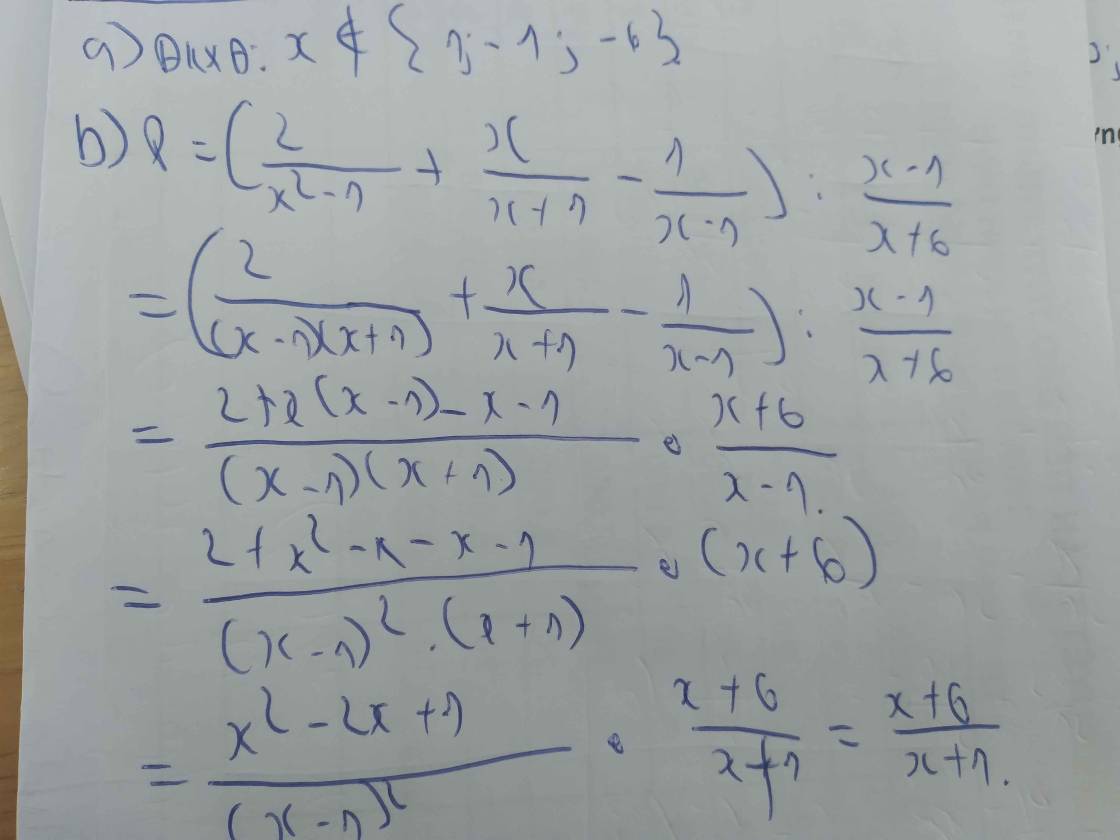 a) ĐKXĐ: x ∉ {1; -1; -6}
b) P = (2/(x² - 1) + x/(x + 1) - 1/(x - 1)) : (x - 1)/(x + 6)
= (2/((x - 1)(x + 1)) + x/(x + 1) - 1/(x - 1)) : (x - 1)/(x + 6)
= (2 + x(x - 1) - x - 1)/((x - 1)(x + 1)) . (x + 6)/(x - 1).
= (2 + x² - x - x - 1)/((x - 1)² . (x + 1)) . (x + 6)
= (x² - 2x + 1)/(x - 1)² . (x + 6)/(x + 1) = (x + 6)/(x + 1).